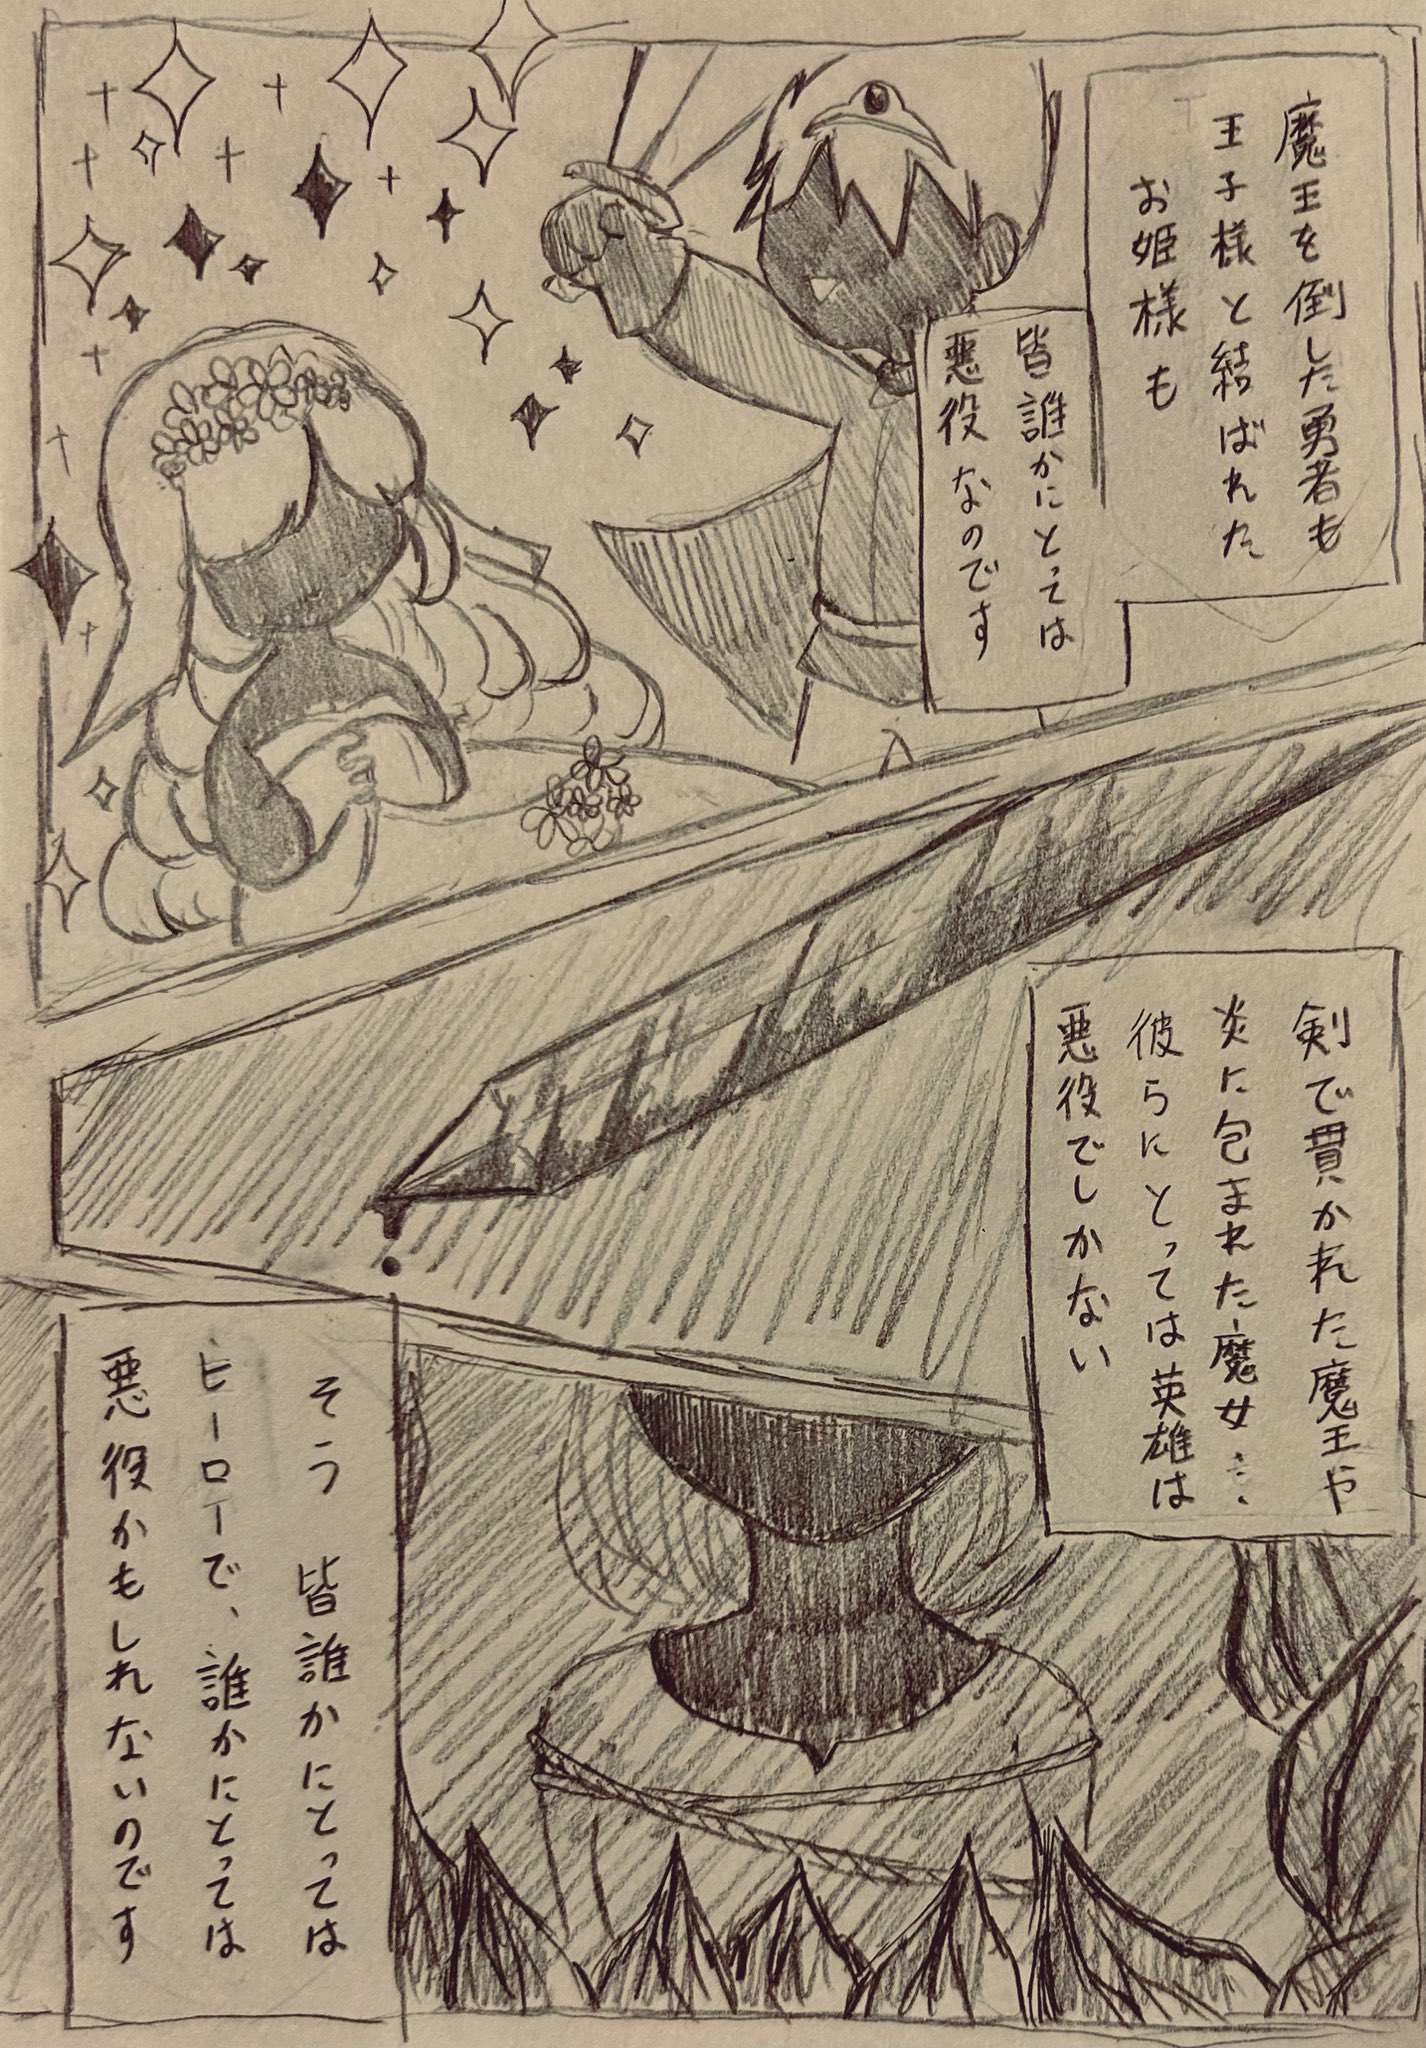 魔王を倒した勇者も
王子様と結ばれた
お姫様も
皆誰かにとっては
悪役なのです
剣で貫かれた魔王や
炎に包まれた魔女…
彼らにとっては英雄は
悪役でしかない
そう 皆誰かにとっては
ヒーローで、誰かにとっては
悪役かもしれないのです